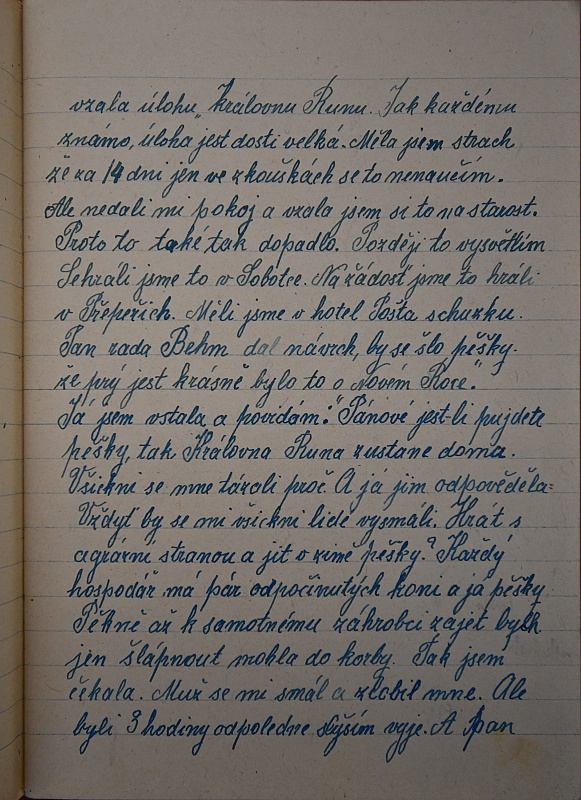 vzala úlohu „Královnu Runu. Jak každému
známo, úloha jest dosti velká. Měla jsem strach
že za 14 dni jen ve zkouškách se to nenaučím.
Ale nedali mi pokoj a vzala jsem si to na starost.
Proto to také tak dopadlo. Později to vysvětlím
Sehráli jsme to v Sobotce. Na žádosť jsme to hráli
v Přepeřich. Měli jsme v hotel Pošta schuzku.
Pan rada Behm dal návrch, by se šlo pěšky.
že prý jest krásně bylo to o Novém Roce".
Já jsem vstala a povidám: "Pánové jest-li pujdete
pěšky, tak Královna Runa zustane doma.
Všichni se mne tázali proč. A já jim odpověděla-
Vždyť by se mi všichni lidé vysmáli. Hrát s
agrární stranou a jit v zimě pěšky? Každý
hospodář má pár odpočinutých koni a já pěšky
Pěkně až k samotnému záhrobci zajet bych
jen šlápnout mohla do korby. Tak jsem
čekala. Muž se mi smál a zlobil mne. Ale
byli 3 hodiny odpoledne slyším vyje. A pan